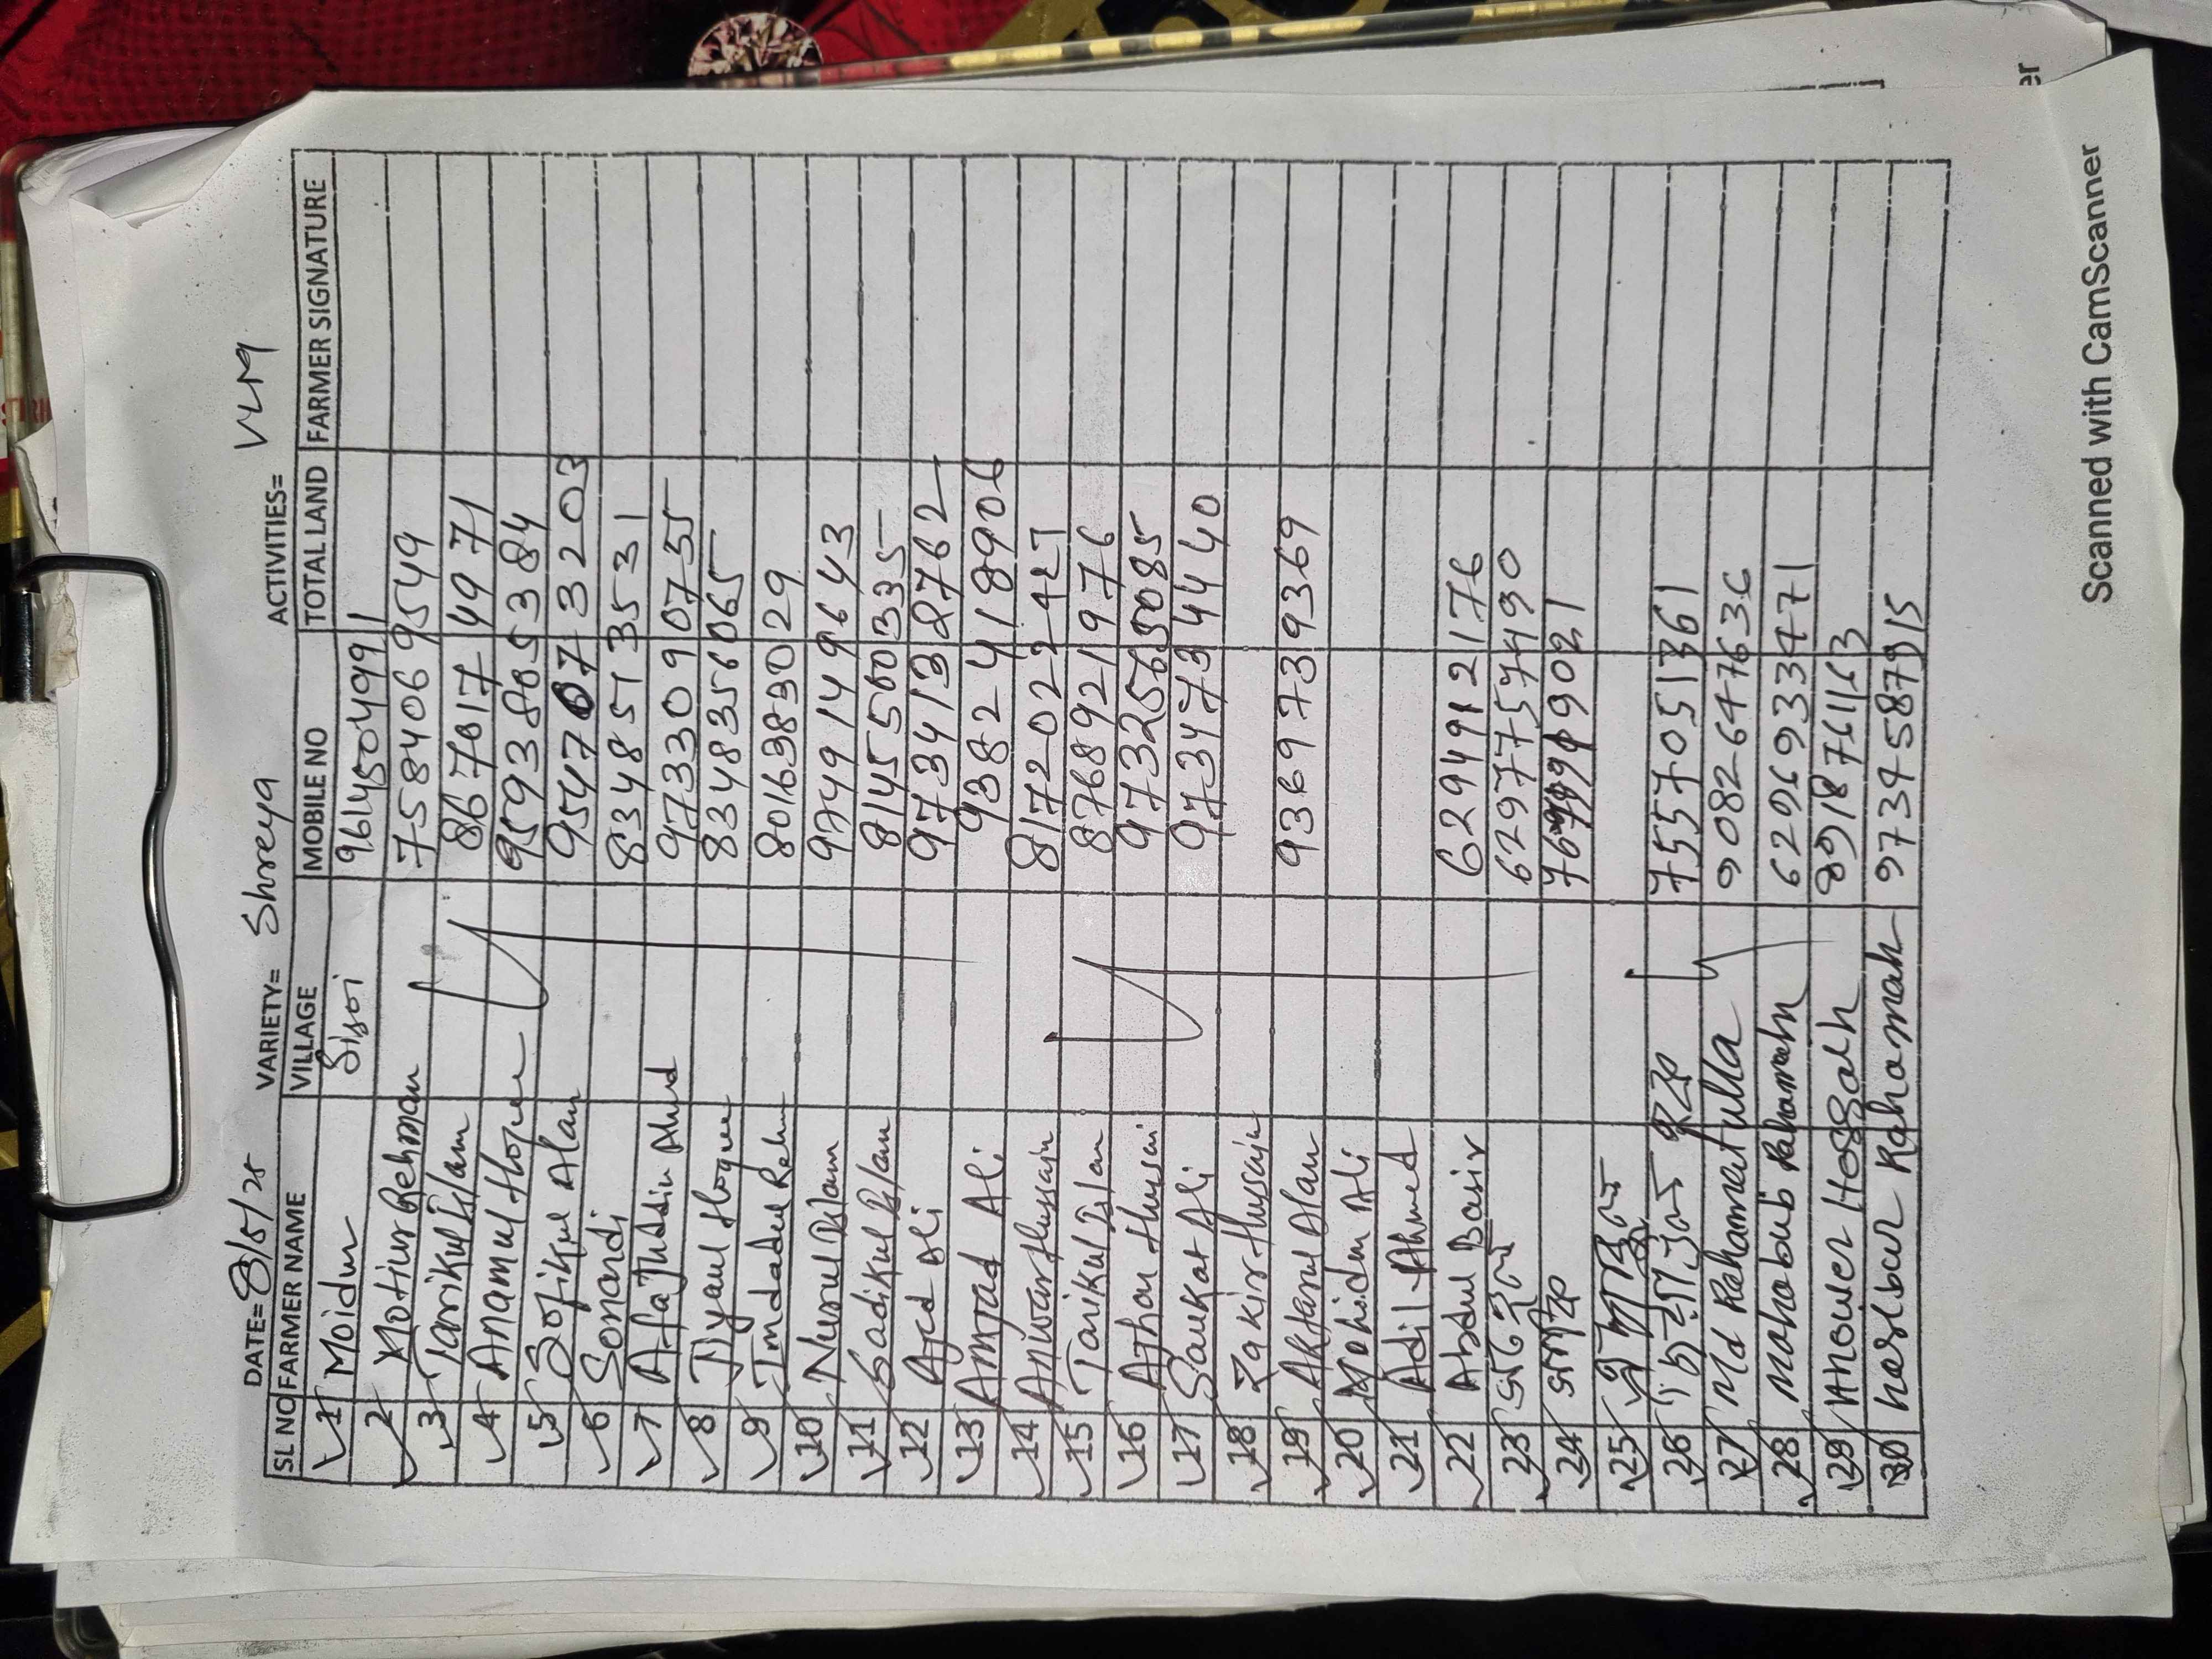 DATE= 8/5/25 VARIETY= Shreya ACTIVITIES= VLM
SL NO FARMER NAME VILLAGE MOBILE NO TOTAL LAND FARMER SIGNATURE
1 Moidur 9614504991
2 Motiur Rehman 7584069549
3 Tarikul Islam 8670174971
4 Anamul Hoque 9593885384
5 Sofikul Alam 9547073203
6 Sonardi 8348513531
7 Afajuddin Ahmd 9733090735
8 Iyanul Hoque 8348356065
9 Imdadul Rehm 8016383029
10 Nurul Islam 9749149643
11 Sadikul Islam 8145500335
12 Ajed Ali 9734138762
13 Amjad Ali 9382418906
14 Anwar Hussain
15 Tarikul Islam 8768921976
16 Azhar Hussai 9732565085
17 Saukat Ali 9734734440
18 Zakir Hussain
19 Aktarul Alam 9369739369
20 Mohidur Ali
21 Adil Ahmed
22 Abdul Basir 6294912176
23 6297757490
24
25
26 7557051361
27 Md Rahamatulla 9082647636
28 Mahabub Rahamahn 6296933471
29 Anower Hossah 8918761163
30 Rahamah 9734587915
Scanned with CamScanner